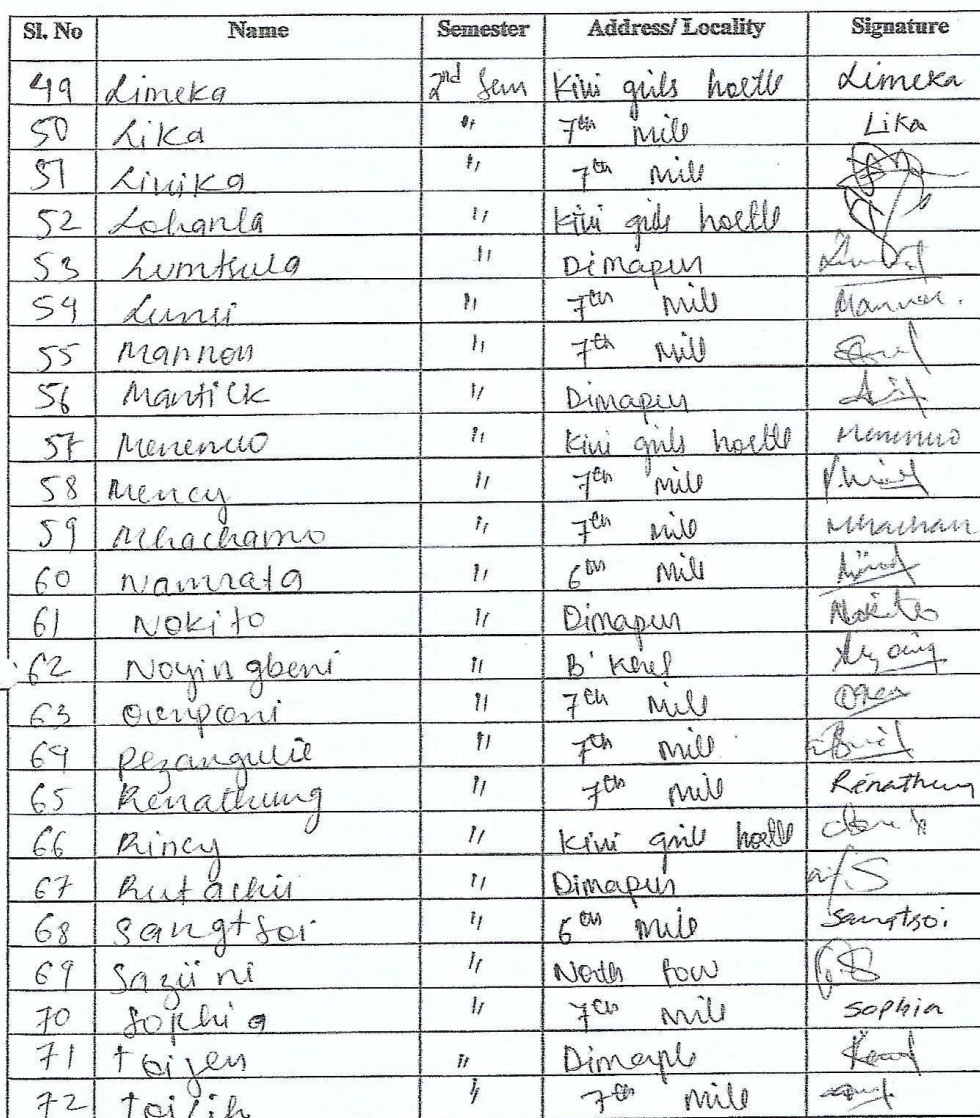 Sl. No Name Semester Address/ Locality Signature
49 Limeka 2nd Sem Kiwi grils hoetle Limeka
50 Lika " 7th Mile Lika
51 Livika " 7th Mile
52 Lohanla " Kiwi gils hoetle
53 Lumtsula " Dimapur
54 Lunui " 7th Mile Mannon.
55 Mannon " 7th Mile
56 Mantick " Dimapur
57 Menenuo " Kiwi girls hoetle Menenuo
58 Mency " 7th Mile
59 Mhachamo " 7th Mile Mhachan
60 Namrata " 6th Mile
61 Nokito " Dimapur Nokito
62 Noyingbeni " B'
63 " 7th Mile
64 Pezangulie " 7th Mile
65 Renathung " 7th Mile Renathung
66 Rincy " Kiwi grils hoetle
67 " Dimapur
68 Sangtsoi " 6th Mile Sangtsoi
69 Sazüni " North
70 Sophia " 7th Mile Sophia
71 Toijen " Dimaple
72 " 7th Mile